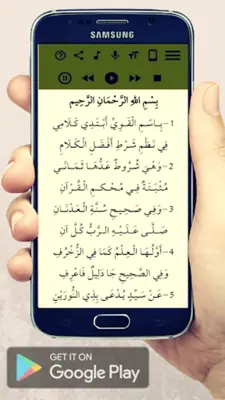 SAMSUNG
بِسْمِ اللهِ الرَّحْمَانِ الرَّحِيمِ
1- بِاسْمِ الْقَوِيِّ أَبْتَدِي كَلَامِي
فِي نَظْمِ شَرْطِ أَفْضَلِ الْكَلَامِ
2- وَهْيَ شُرُوطٌ عَدُّهَا ثَمَانِي
مُثْبَتَةٌ فِي مُحْكَمِ الْقُرْآنِ
3- وَفِي صَحِيحِ سُنَّةِ الْعَدْنَانِ
صَلَّى عَلَيْهِ الرَّبُّ كُلَّ آنِ
4- أَوَّلُهَا الْعِلْمُ كَمَا فِي الزُّخْرُفِ
وَفِي الصَّحِيحِ جَا دَلِيلٌ فَاعْرِفِ
5- عَنْ سَيِّدٍ يُدْعَى بِذِي النُّورَيْنِ
GET IT ON
Google Play